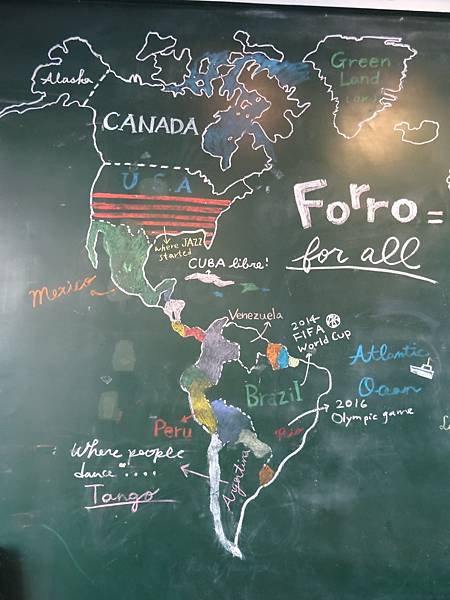 Alaska
Green
Land
CANADA
U S A
Forro =
for all
where JAZZ
started
CUBA libre!
Mexico
Venezuela
2014
FIFA
World Cup
Atlantic
Ocean
Brazil
2016
Olympic game
Peru
Where people
dance "....
Tango
Argentina